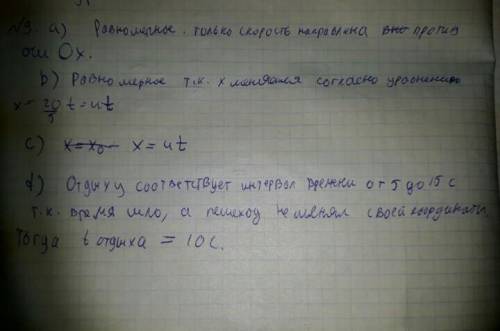 №3. а) Равномерное. только скорость направлена вно против
оси Ox.
b) Равномерное т.к. x меняется согласно уравнению
x = 20/5 t = ut
c) x = x₀ x = ut
d) Отдыху соответствует интервал времени от 5 до 15 с
т.к. время шло, а пешеход не менял своей координаты
Тогда t отдыха = 10 с.